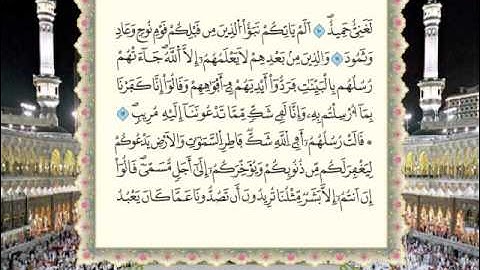 لَغَنِيٌّ حَمِيدٌ ۝ أَلَمْ يَاتِكُمْ نَبَؤُاْ الذِينَ مِن قَبْلِكُمْ قَوْمِ نُوحٍ وَعَادٍ
وَثَمُودَ ۝ وَالذِينَ مِنۢ بَعْدِهِمْ لَا يَعْلَمُهُمُۥٓ إِلَّا اَللَّهُ جَآءَتْهُمْ
رُسُلُهُم بِالْبَيِّنَٰتِ فَرَدُّوٓاْ أَيْدِيَهُمْ فِےٓ أَفْوَٰهِهِمْ وَقَالُوٓاْ إِنَّا كَفَرْنَا
بِمَآ أُرْسِلْتُم بِهِۦ وَإِنَّا لَفِے شَكٍّ مِّمَّا تَدْعُونَنَآ إِلَيْهِ مُرِيبٍ ۝
۞ قَالَتْ رُسُلُهُمُۥٓ أَفِے اِللَّهِ شَكٌّ فَاطِرِ اِلسَّمَٰوَٰتِ وَالَارْضِ يَدْعُوكُمْ
لِيَغْفِرَ لَكُم مِّن ذُنُوبِكُمْ وَيُؤَخِّرَكُمُۥٓ إِلَىٰٓ أَجَلٍ مُّسَمًّى قَالُوٓاْ
إِنَ اَنتُمُۥٓ إِلَّا بَشَرٌ مِّثْلُنَا تُرِيدُونَ أَن تَصُدُّونَا عَمَّا كَانَ يَعْبُدُ